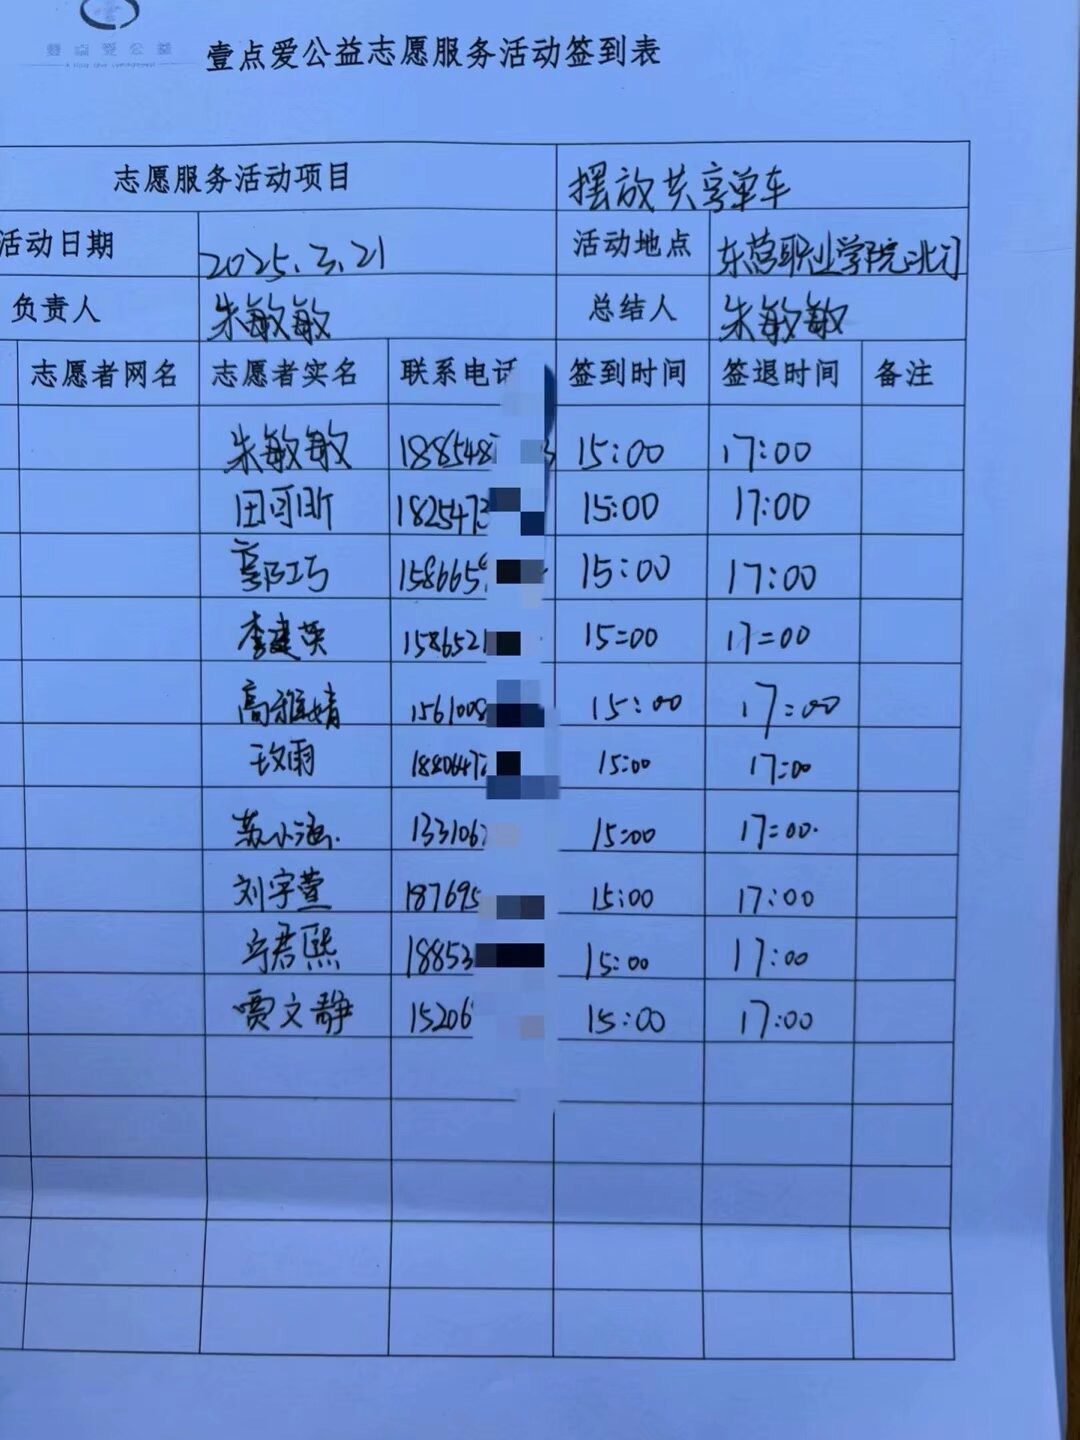 壹点爱公益
壹点爱公益志愿服务活动签到表
志愿服务活动项目 摆放共享单车
活动日期 2025.3.21 活动地点 东营职业学院北门
负责人 朱敏敏 总结人 朱敏敏
志愿者网名 志愿者实名 联系电话 签到时间 签退时间 备注
朱敏敏 188548 3 15:00 17:00
田可昕 1825473 15:00 17:00
郭巧 158665 15:00 17:00
李建英 1586521 15:00 17:00
高雅婧 1561008 15:00 17:00
玫雨 1880647 15:00 17:00
苏小涵 133106 15:00 17:00
刘宇萱 187695 15:00 17:00
宁君熙 18853 15:00 17:00
贾文静 15206 15:00 17:00